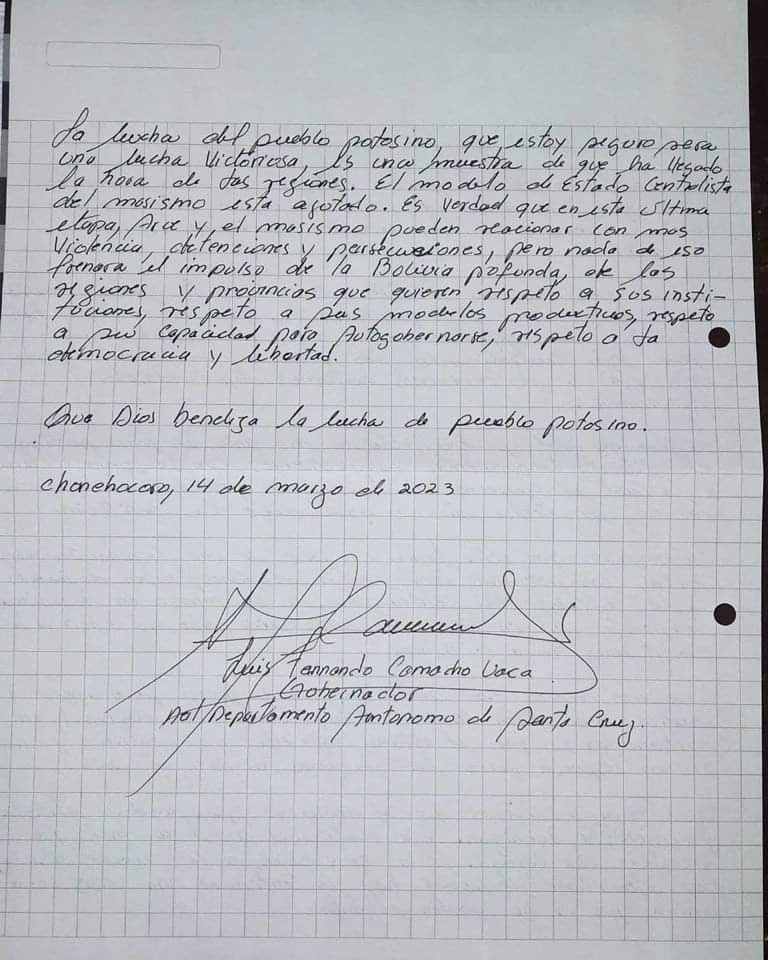 La lucha del pueblo potosino, que estoy seguro sera
una lucha Victoriosa, es una muestra de que ha llegado
la hora de las regiones. El modelo de Estado Centralista
del masismo esta agotado. Es verdad que en esta última
etapa, Arce y el masismo pueden reacionar con mas
Violencia, detenciones y persecuciones, pero nada de eso
frenara el impulso de la Bolivia profunda, de las
regiones y provincias que quieren respeto a sus insti-
tuciones, respeto a sus modelos productivos, respeto
a su capacidad para Autogobernarse, respeto a la
democracia y libertad.
Que Dios bendiga la lucha de pueblo potosino.
Chonchocoro, 14 de marzo de 2023
Luis Fernando Camacho Vaca
Gobernador
Del Departamento Autonomo de Santa Cruz.